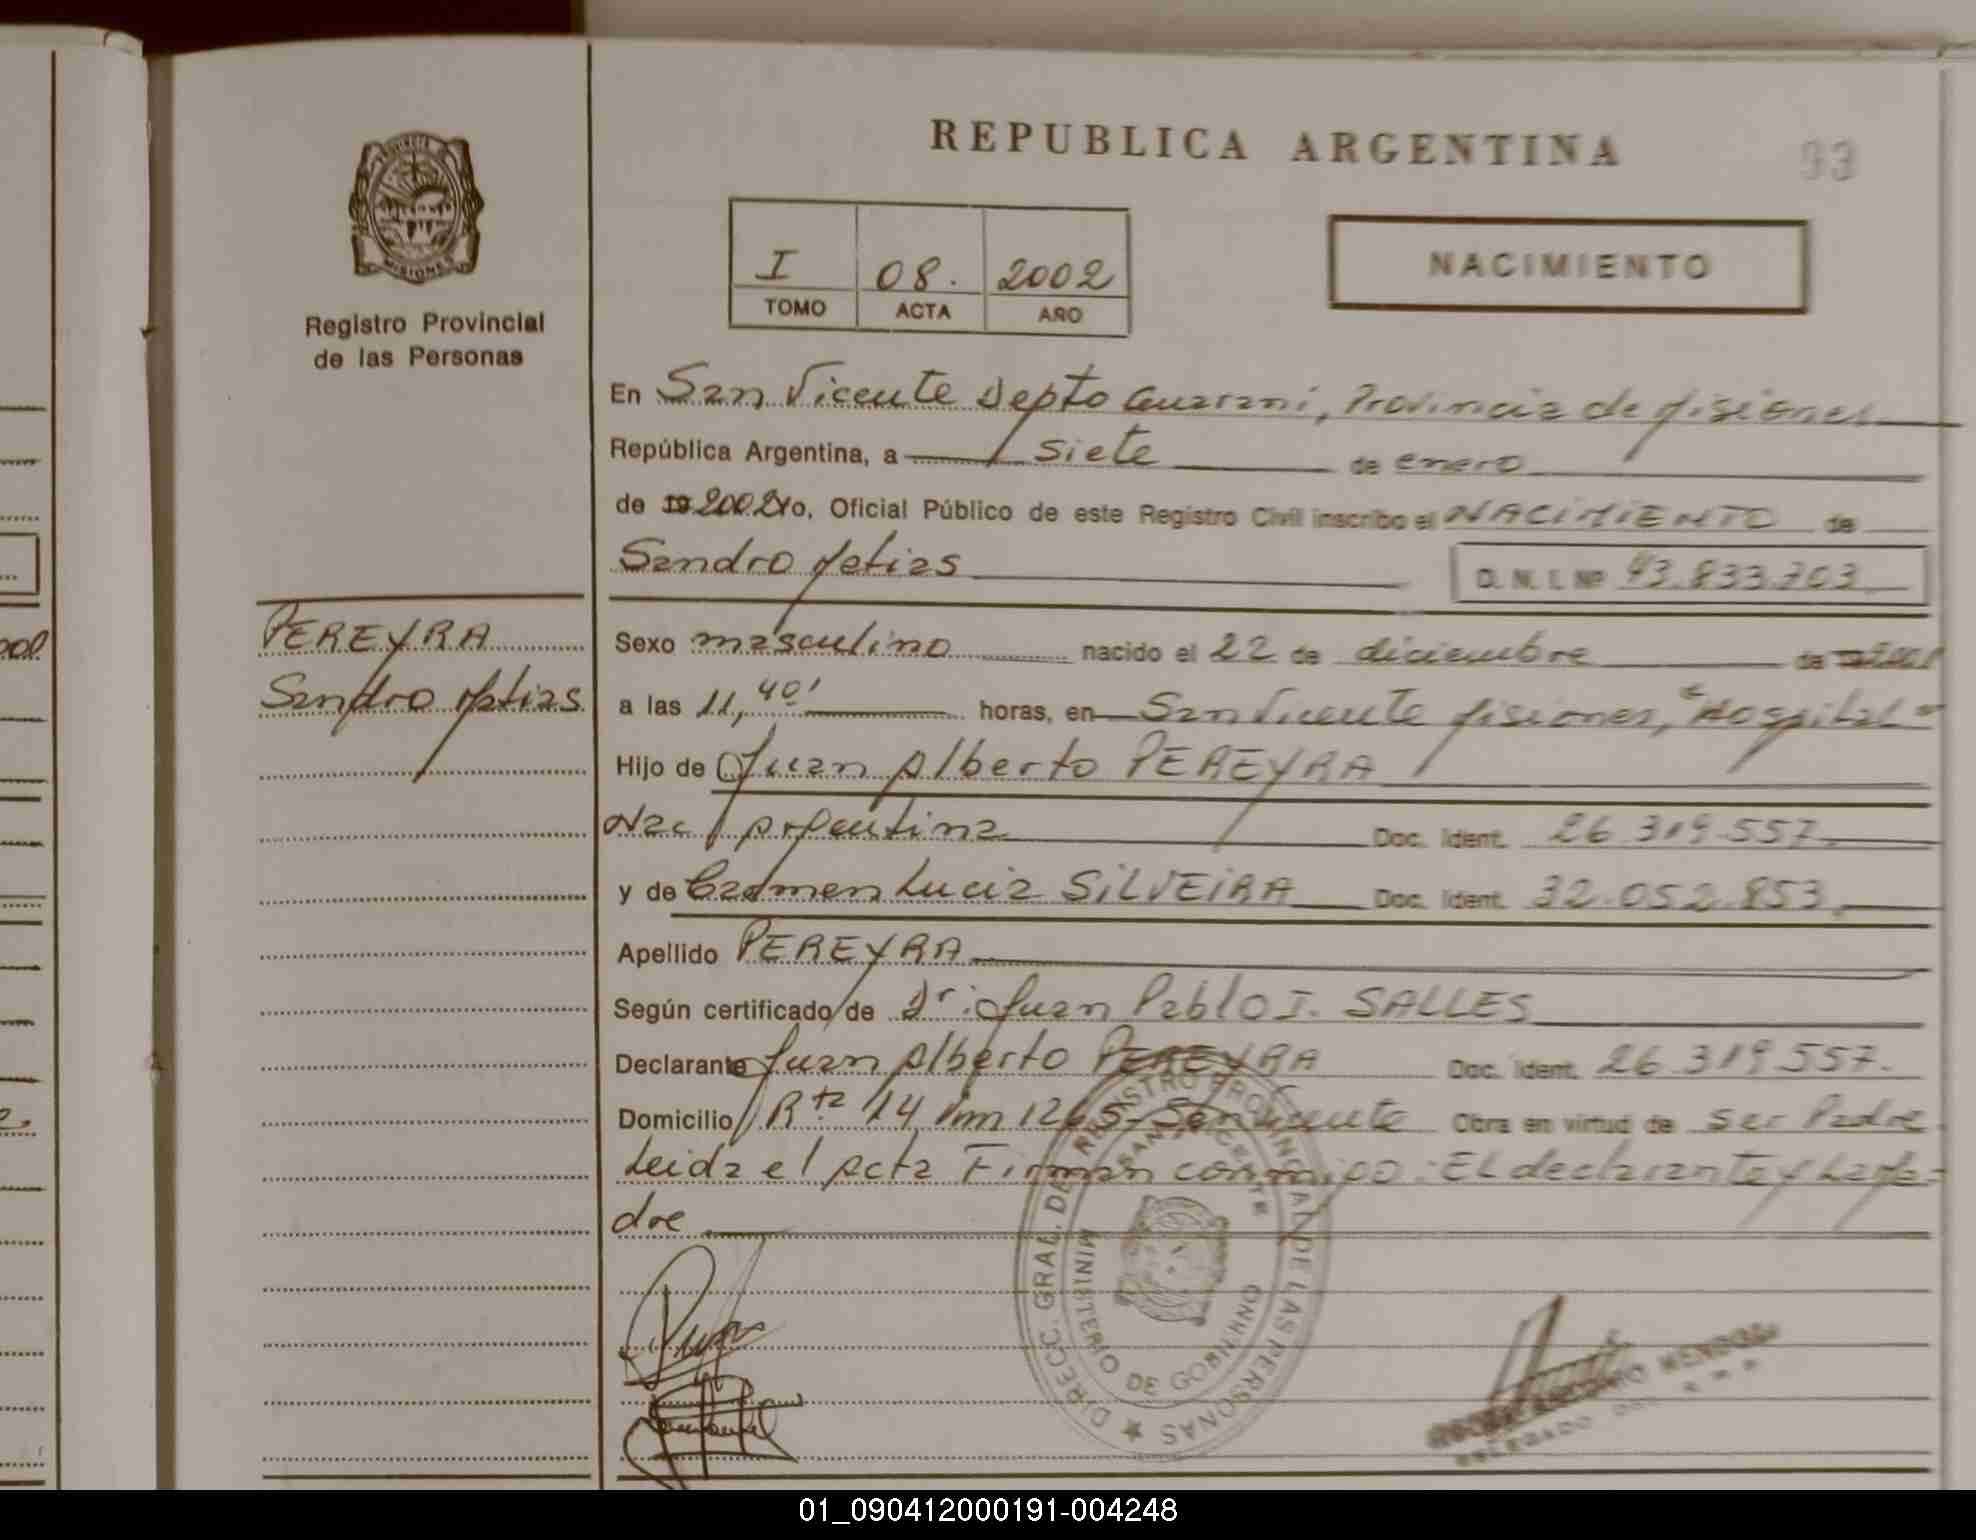 REPUBLICA ARGENTINA
33
PROVINCIA
MISIONES
Registro Provincial
de las Personas
I 08. 2002
TOMO ACTA AÑO
NACIMIENTO
En San Vicente Depto Guaraní, Provincia de Misiones
República Argentina, a siete de enero
de 19 2002 Yo, Oficial Público de este Registro Civil inscribo el NACIMIENTO de
Sandro Matias
D. N. I. Nº 43.833.703
PEREYRA
Sandro Matias
Sexo masculino nacido el 22 de diciembre de 2001
a las 11,40' horas, en San Vicente Misiones, "Hospital"
Hijo de Juan Alberto PEREYRA
Nac. Argentina Doc. Ident. 26.319.557
y de Carmen Lucia SILVEIRA Doc. Ident. 32.052.853.
Apellido PEREYRA
Según certificado de Dr: Juan Pablo I. SALLES
Declarante Juan Alberto PEREYRA Doc. Ident. 26.319.557.
Domicilio Rta 14 Km 1265 San Vicente Obra en virtud de ser Padre
Leida el Acta Firman conmigo: El declarante y La Ma=
dre
DIRECC. GRAL. DEL REGISTRO PROVINCIAL DE LAS PERSONAS
SAN VICENTE
MINISTERIO DE GOBIERNO
ANTONIO MENDOZA
DELEGADO
01_090412000191-004248